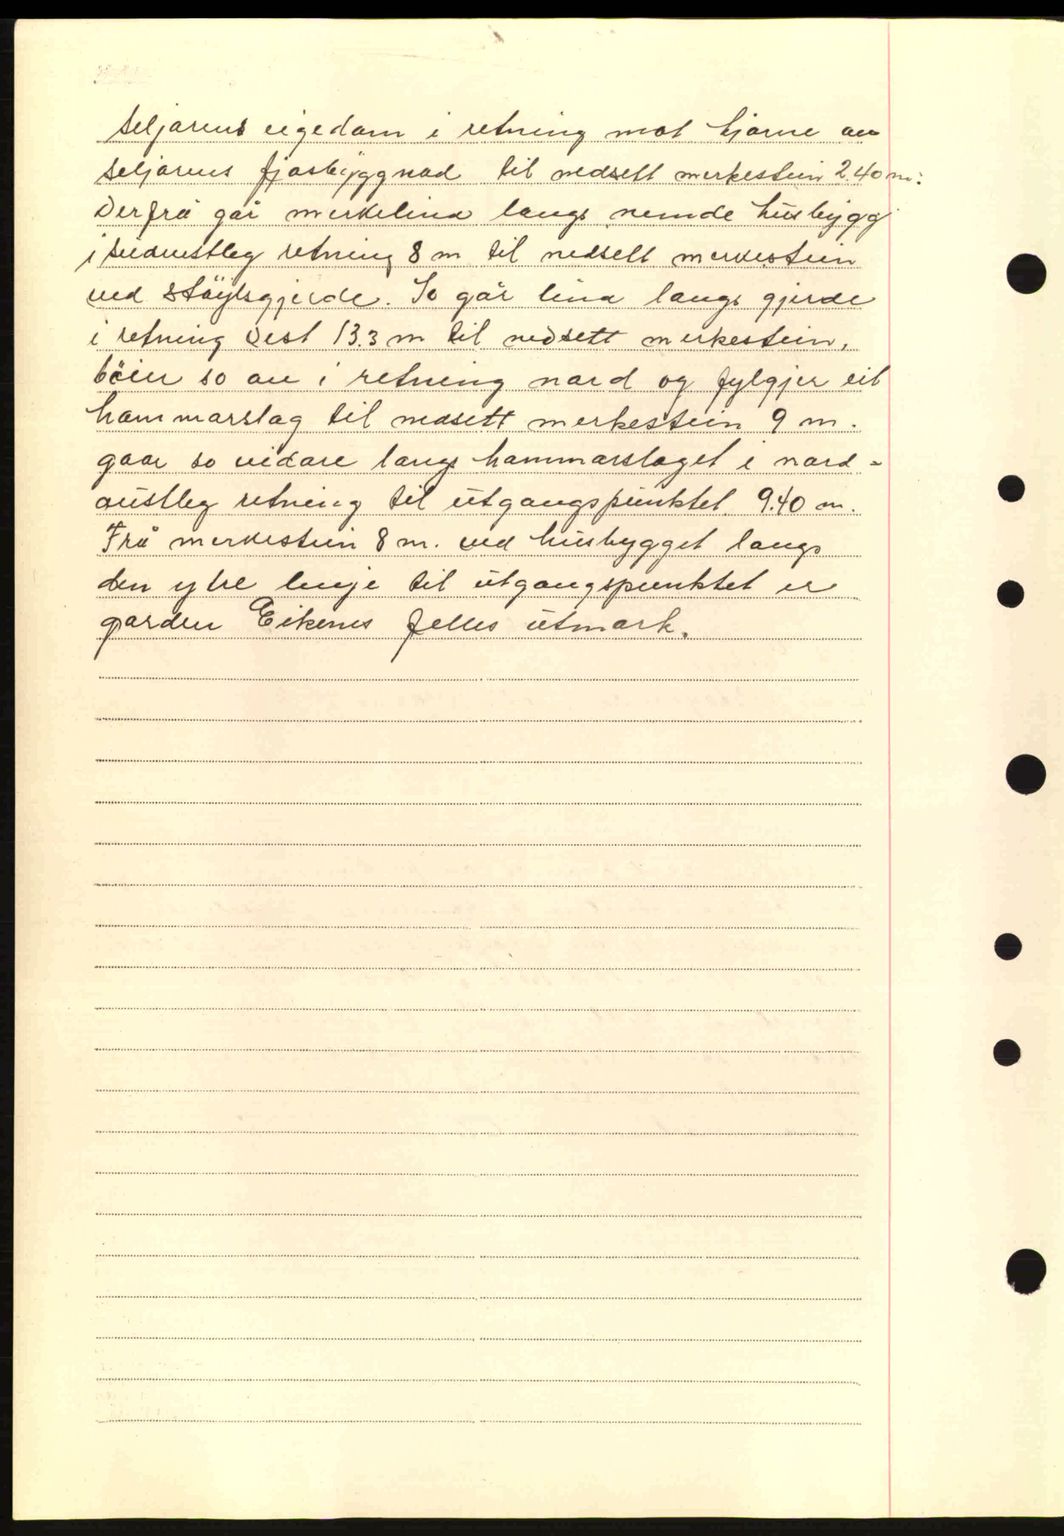 Seljarens eigedom i retning mot hjørne av
seljarens fjøsbyggnad til nedsett merkestein 2.40 m.
Derfrå går merkelina langs nemde husbygg
i sudaustleg retning 8 m til nedsett merkestein
ved Støylsgjerde. So går lina langs gjerde
i retning Vest 13.3 m til nedsett merkestein,
böier so av i retning nord og fylgjer eit
hammarslag til nedsett merkestein 9 m.
gaar so vidare langs hammarslaget i nord-
austleg retning til utgangspunktet 9.40 m.
Frå merkestein 8 m. ved husbygget langs
den ytre linje til utgangspunktet er
garden Eikenes felles utmark.